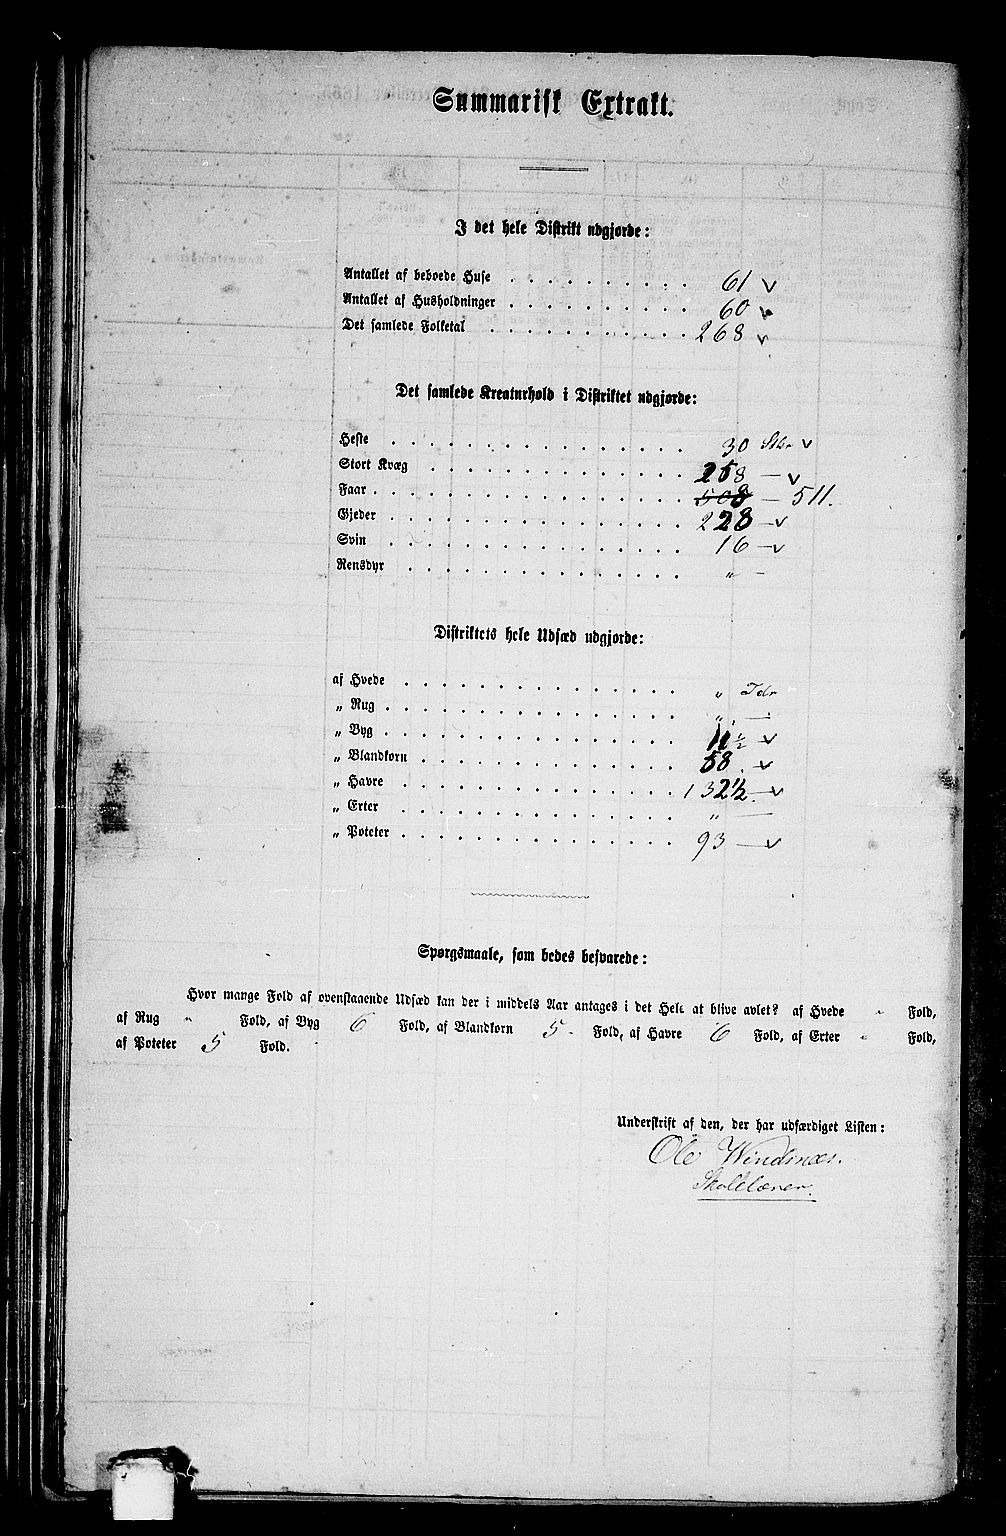 Summarisk Extrakt.
I det hele Distrikt udgjorde:
Antallet af beboede Huse . . . . . . . . . . 61 v
Antallet af Husholdninger . . . . . . . . . . 60 v
Det samlede Folketal . . . . . . . . . . . 268 v
Det samlede Kreaturhold i Distriktet udgjorde:
Heste . . . . . . . . . . . . . . . . 30 Stkr v
Stort Kvæg . . . . . . . . . . . . . . 258 — v
Faar . . . . . . . . . . . . . . . . . 508 — 511.
Gjeder . . . . . . . . . . . . . . . . 228 — v
Svin . . . . . . . . . . . . . . . . 16 — v
Rensdyr . . . . . . . . . . . . . . . „ —
Distriktets hele Udsæd udgjorde:
af Hvede . . . . . . . . . . . . . . . „ Tdr
„ Rug . . . . . . . . . . . . . . . . „ —
„ Byg . . . . . . . . . . . . . . . . 11 ½ v
„ Blandkorn . . . . . . . . . . . . . . 58. v
„ Havre . . . . . . . . . . . . . . . 132½ — v
„ Erter . . . . . . . . . . . . . . . „ —
„ Poteter . . . . . . . . . . . . . . . 93 — v
Spørgsmaale, som bedes besvarede:
Hvor mange Fold af ovenstaaende Udsæd kan der i middels Aar antages i det Hele at blive avlet? af Hvede „ Fold,
af Rug „ Fold, af Byg 6 Fold, af Blandkorn 5 Fold, af Havre 6 Fold, af Erter „ Fold,
af Poteter 5 Fold.
Underskrift af den, der har udfærdiget Listen:
Ole Windsnæs.
Skolelærer.